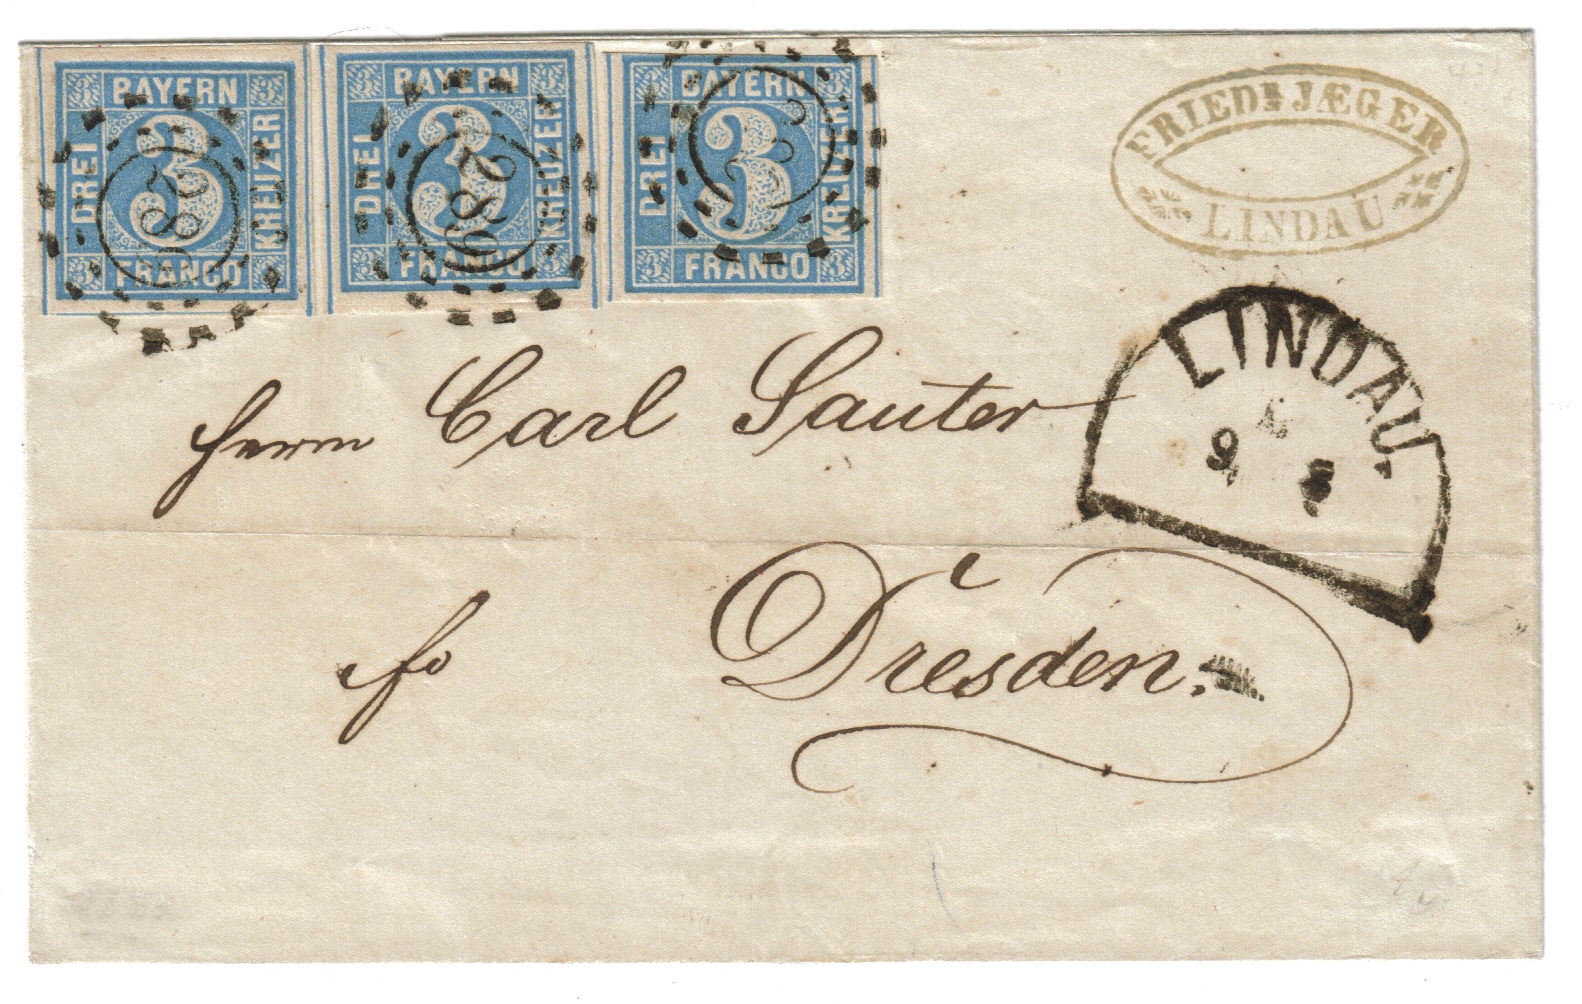 BAYERN
3 3
DREI 3 KREUZER
3 FRANCO 3
289
BAYERN
3 3
DREI 3 KREUZER
3 FRANCO 3
289
BAYERN
3 3
DREI 3 KREUZER
3 FRANCO 3
FRIEDR JÆGER
LINDAU
LINDAU.
9
Herrn Carl Sauter
fo Dresden.